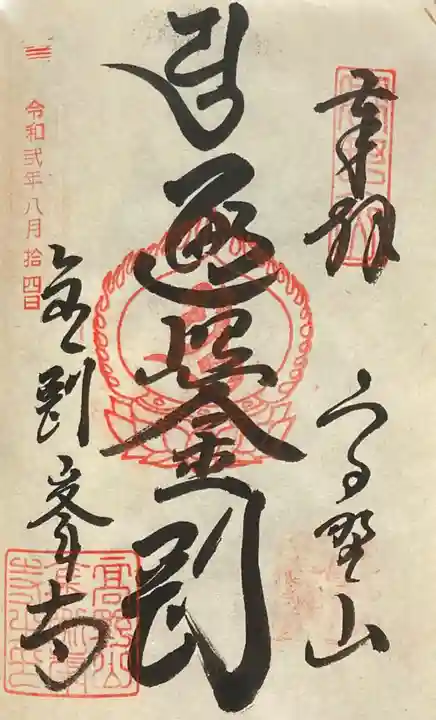 奉拝
高野山
遍照金剛
金剛峯寺
令和弐年八月拾四日